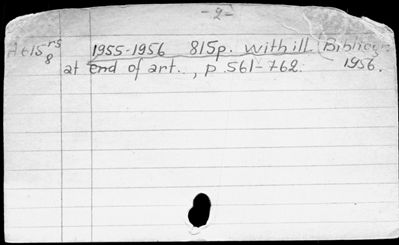 -2-
A615rs 1955-1956 815p. with ill. (Bibliogr.
8 at end of art., p. 561-762. 1956.